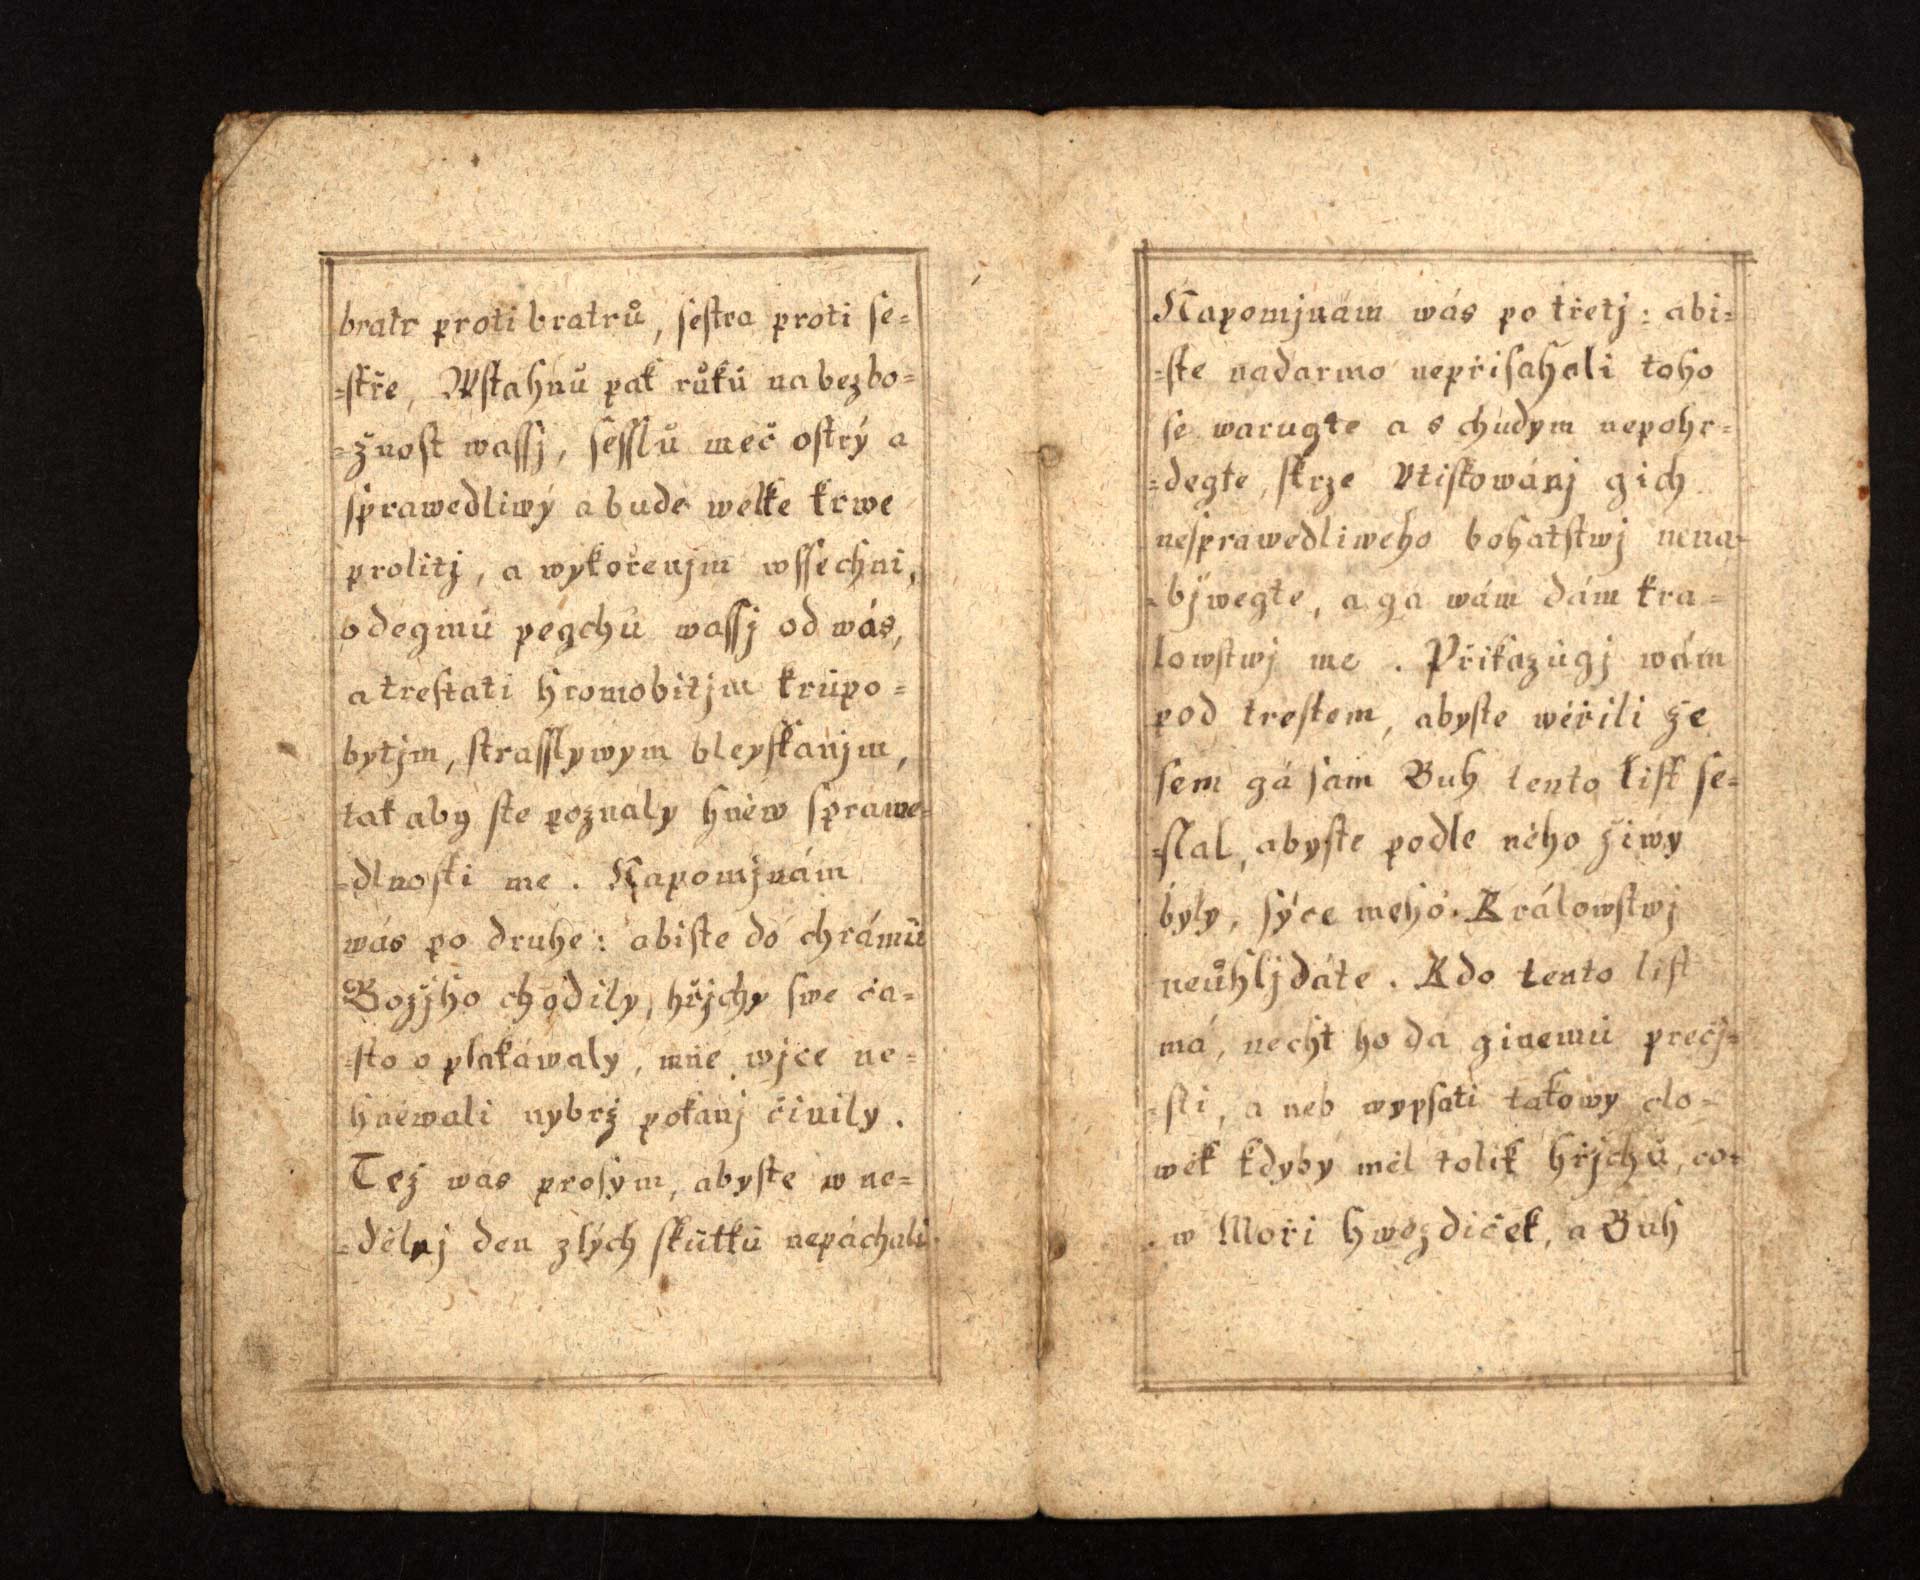 bratr proti bratrů, seſtra proti ſe=
=ſtře, Wſtahnů pak růků na bezbo=
=žnoſt waſſj, ſeſſlů meč oſtrý a
ſprawedliwý a bude welke krwe
prolitj, a wykořenjm wſſechni,
odegmů pegchů waſſj od wás,
a treſtati hromobitjm krůpo=
bytjm, ſtraſſlywym bleyſkanjm,
tak aby ſte poznaly hněw ſprawe=
=dlnoſti me. Napomjnám
wás po druhe: abiſte do chrámů
Božjho chodily, hřjchy ſwe ča=
=ſto oplakáwaly, mne wjce ne=
hněwali nybrž pokanj činily.
Též was proſým, abyſte w ne=
=dělnj den zlých ſkůtků nepáchali
Napomjnám wás po třetj: abi=
=ſte nadarmo nepřiſahali toho
ſe warugte a s chudym nepohr=
=degte, ſkrze Vtiſkowánj gich
neſprawedliweho bohatſtwj nena=
=bjwegte, a gá wám dám kra=
lowſtwj me. Přikazůgj wám
pod treſtem, abyſte wěřili že
ſem gá ſám Buh tento liſt ſe=
=ſlal, abyſte podle něho žiwy
byly, ſýce meho. Králowſtwj
neůhljdáte. Kdo tento liſt
má, necht ho dá ginemů prečj=
=ſti, a neb wypſati takowy clo=
wěk kdyby měl tolik hřjchů, co=
. w Moři hwězdiček, a Buh